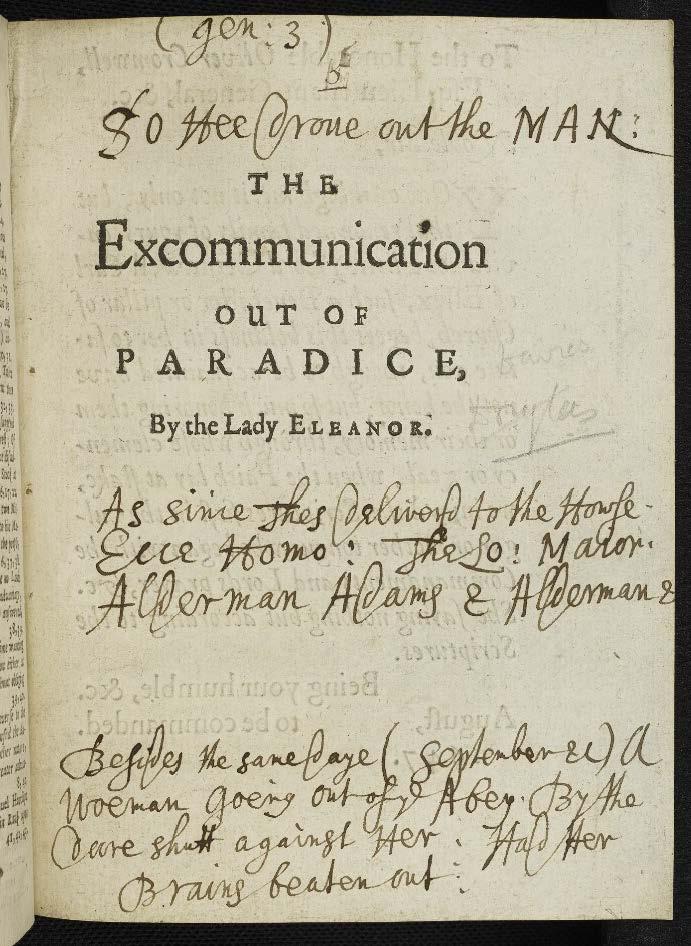 (gen: 3.)
So Hee drove out the MAN:
THE
Excommunication
OUT OF
PARADICE,
By the Lady ELEANOR.
Davies
As since Thes Deliverd to the Howse.
Ecce Homo: The Lo: Maior.
Alderman Adams & Alderman &
Besides the same Daye (September &c) A
Woeman Going out of ye Abey. By the
Doore shutt against Her. Had Her
Brains beaten out: